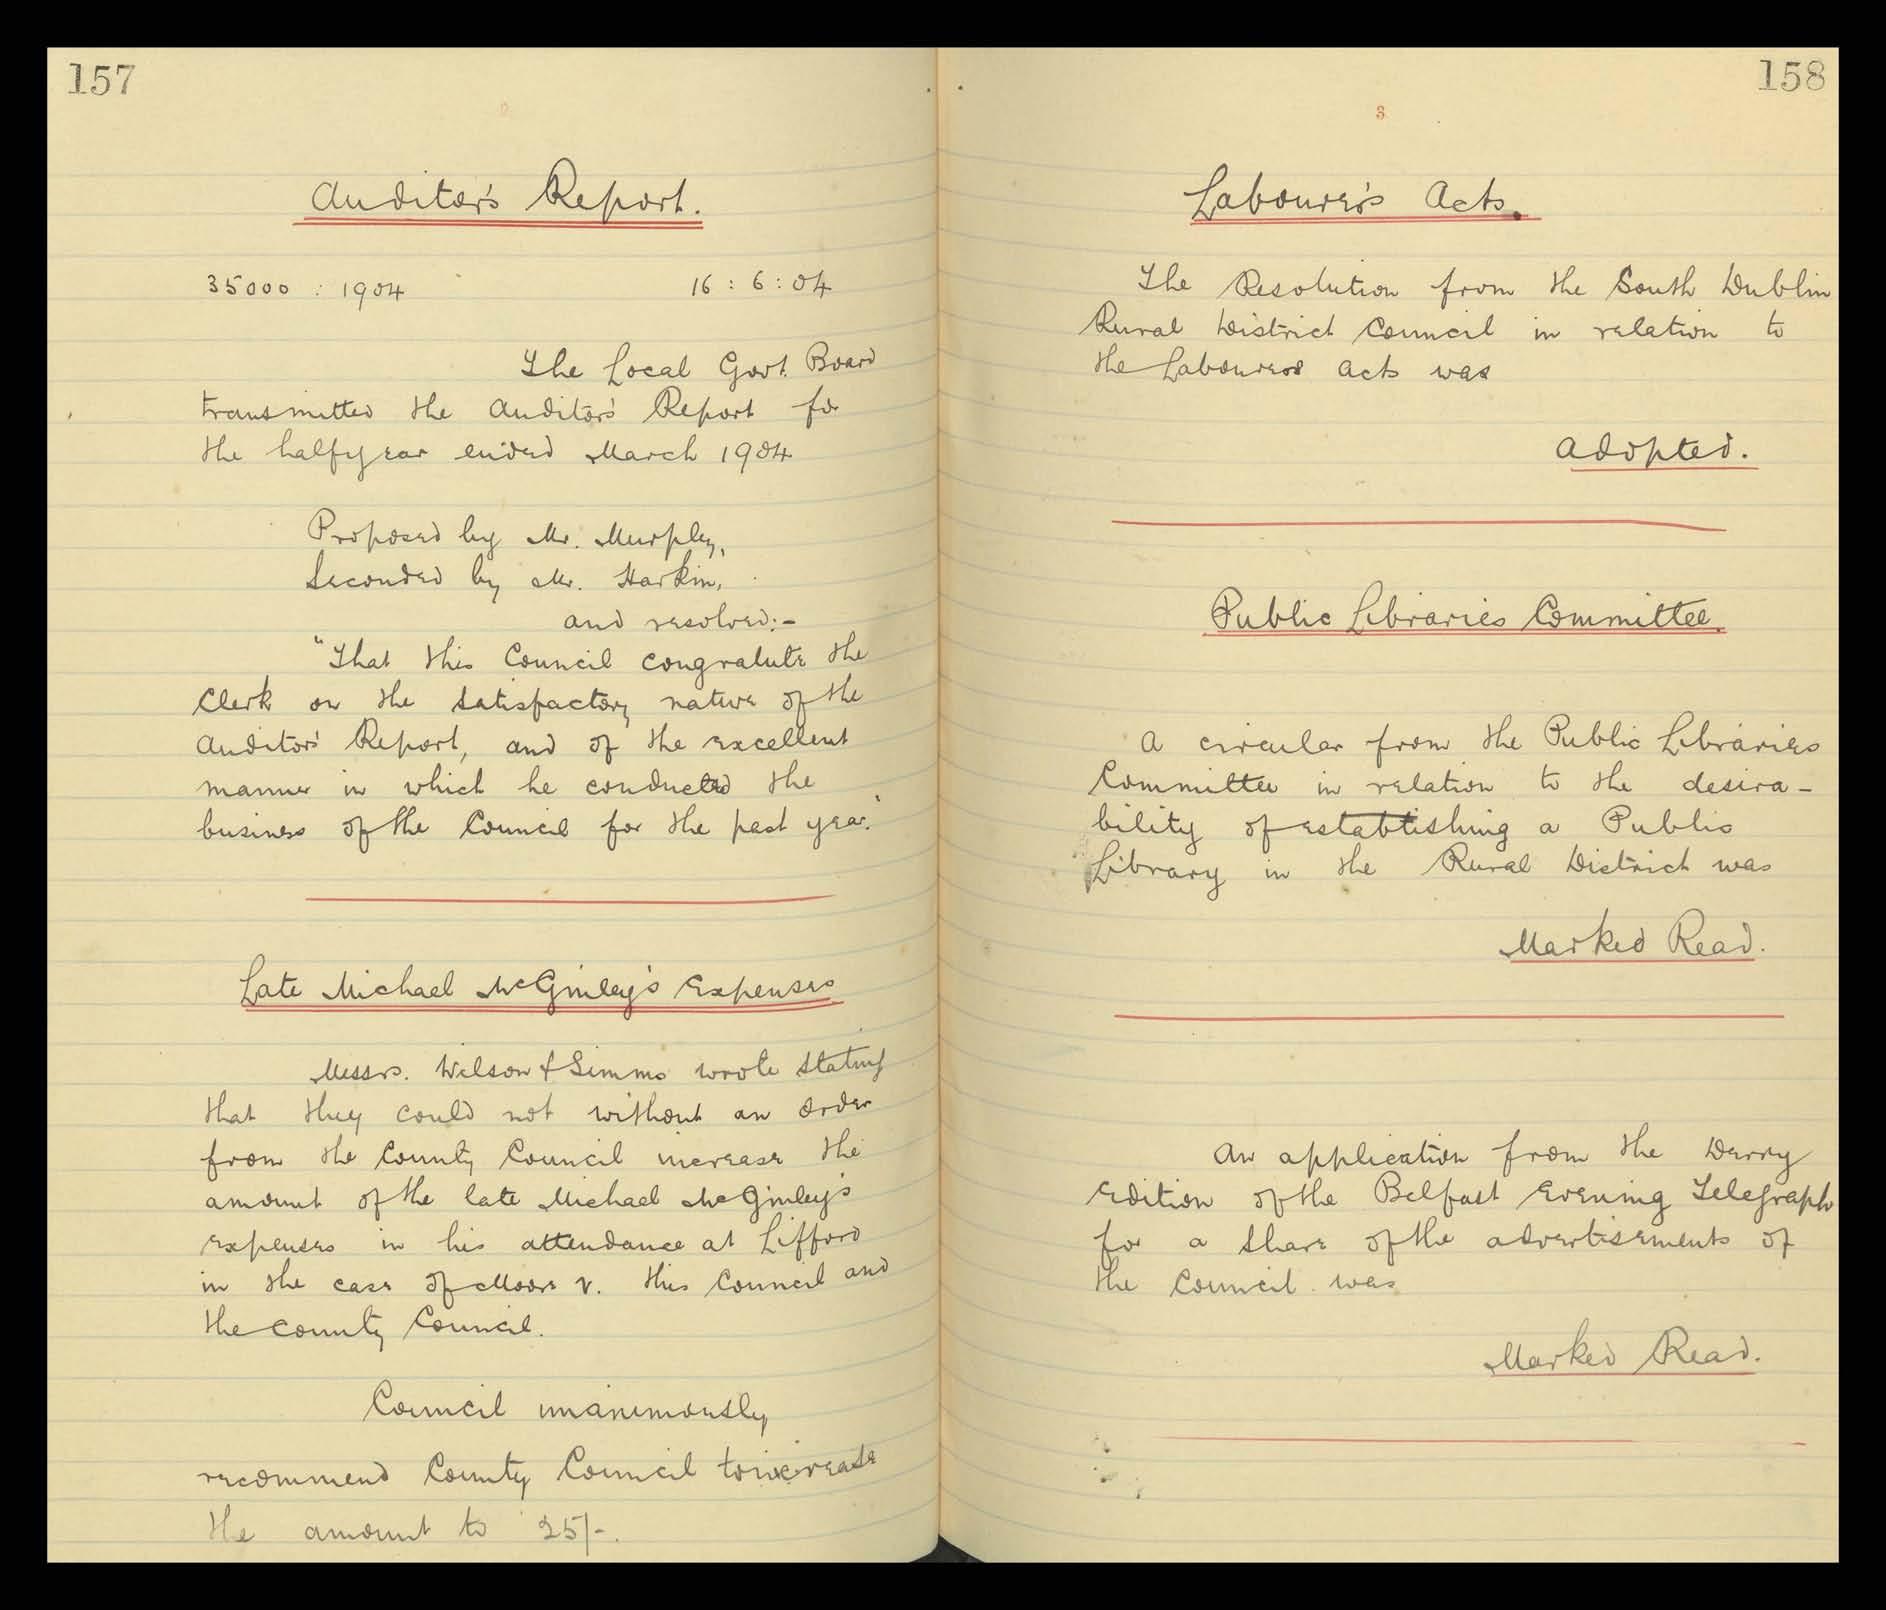 157
Auditor's Report.
35000 : 1904 16 : 6 : 04
The Local Govt. Board
transmitted the Auditor's Report for
the halfyear ended March 1904
Proposed by Mr. Murphy,
Seconded by Mr. Harkin,
and resolved:-
"That this Council congratulate the
Clerk on the satisfactory nature of the
Auditors' Report, and of the excellent
manner in which he conducted the
business of the Council for the past year."
Late Michael McGinley's Expenses
Messrs. Wilson & Simms wrote stating
that they could not without an order
from the County Council increase the
amount of the late Michael McGinley's
expenses in his attendance at Lifford
in the case of Moore v. this Council and
the County Council.
Council unanimously
recommend County Council to increase
the amount to 25/-.
158
3
Labourer's Acts.
The Resolution from the South Dublin
Rural District Council in relation to
the Labourers Acts was
Adopted.
Public Libraries Committee.
A circular from the Public Libraries
Committee in relation to the desira-
bility of establishing a Public
Library in the Rural District was
Marked Read.
An application from the Derry
edition of the Belfast Evening Telegraph
for a share of the advertisements of
the Council was
Marked Read.